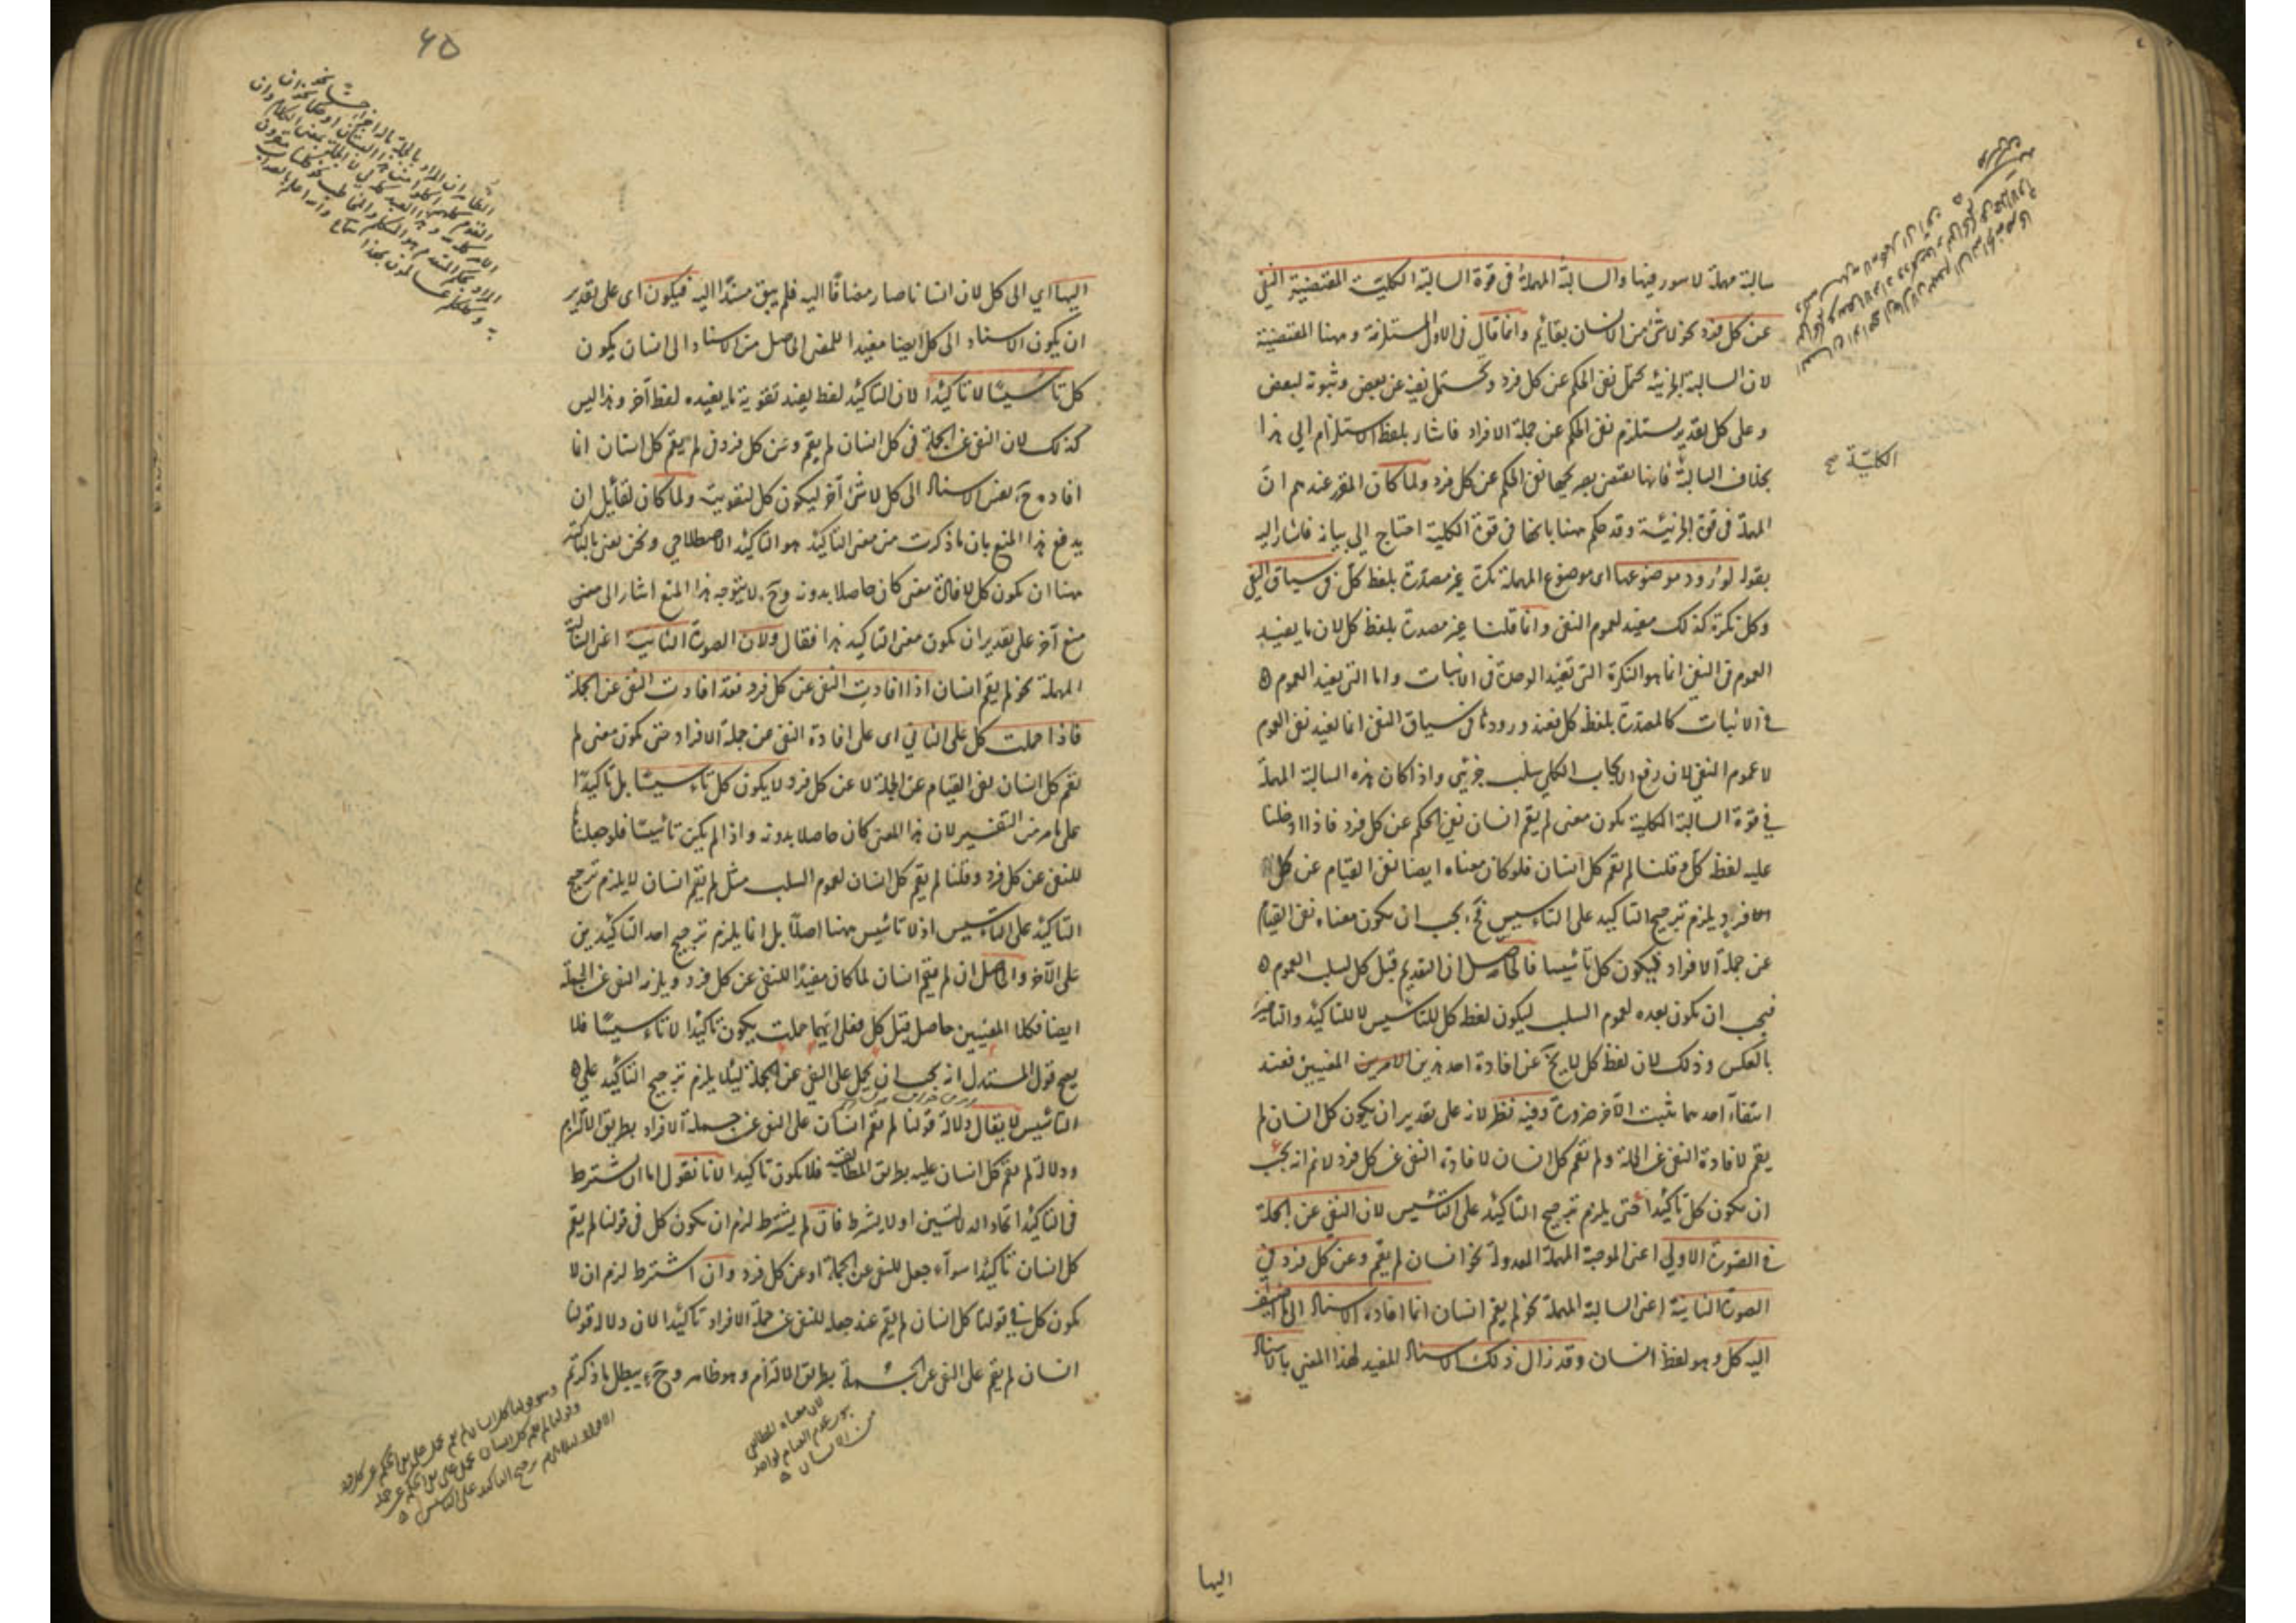 سالبة مهملة لا سور فيها والسالبة المهملة فى قوة السالبة الكلية المقتضية النفى
عن كل فرد نحو لا شئ من الانسان بقائم وانما قال فى الاول المستلزمة وههنا المقتضية
لان السالبة الجزئية يحتمل نفى الحكم عن كل فرد ويحتمل نفيه عن بعض وثبوته لبعض
وعلى كل تقدير يستلزم نفى الحكم عن جملة الافراد فاشار بلفظ الاستلزام الى هذا
بخلاف السالبة فانها تقتضى بصريحها نفى الحكم عن كل فرد ولما كان المقرر عندهم ان
الكلية صح
المهملة فى قوة الجزئية وقد حكم ههنا بانها فى قوة الكلية احتاج الى بيانه فاشار اليه
بقوله لورود موضوعها اى موضوع المهملة نكرة غير مصدرة بلفظ كل فى سياق النفى
وكل نكرة كذلك مفيد لعموم النفى وانما قلنا غير مصدرة بلفظ كل لان ما يفيد
العموم فى النفى انما هو النكرة التى تفيد الوحدة فى الاثبات واما التى يفيد العموم
فى الاثبات كالمصدرة بلفظ كل فعند ورودها فى سياق النفى انما يفيد نفى العموم
لا عموم النفى لان رفع الايجاب الكلى سلب جزئى واذا كان هذه السالبة المهملة
فى قوة السالبة الكلية يكون معنى لم يقم انسان نفى الحكم عن كل فرد فاذا ادخلنا
عليه لفظ كل وقلنا لم يقم كل انسان فلو كان معناه ايضا نفى القيام عن كل
فرد يلزم ترجيح التاكيد على التاسيس فح يجب ان يكون معناه نفى القيام
عن جملة الافراد فيكون كل تاسيسا فالحاصل ان التقديم قبل كل لسلب العموم
فيجب ان يكون بعده لعموم السلب ليكون لفظ كل للتاسيس لا للتاكيد والتاخير
بالعكس وذلك لان لفظ كل لا يخ عن افادة احد هذين الامرين المعنيين فعند
انتفاء احدهما يثبت الآخر ضرورة وفيه نظر لانه على تقدير ان يكون كل انسان لم
يقم لافادة النفى عن الجملة ولم يقم كل انسان لافادة النفى عن كل فرد لانم انه يجب
ان يكون كل تاكيدا حتى يلزم ترجيح التاكيد على التاسيس لان النفى عن الجملة
فى الصورة الاولى اعنى الموجبة المهملة المعدولة نحو انسان لم يقم وعن كل فرد فى
الصورة الثانية اعنى السالبة المهملة نحو لم يقم انسان انما افاده الاسناد الى ما اضيف
اليه كل وهو لفظ انسان وقد زال ذلك الاسناد المفيد لهذا المعنى بالاسناد
اليها
٤٥
اليها اى الى كل لان انسانا صار مضافا اليه فلم يبق مسندا اليه فيكون اى على تقدير
ان يكون الاسناد الى كل ايضا مفيدا للمعنى الحاصل من الاسناد الى انسان يكون
كل تاسيسا لا تاكيدا لان التاكيد لفظ يفيد تقوية ما يفيده لفظ آخر وهذا ليس
كذلك لان النفى عن الجملة فى كل انسان لم يقم وعن كل فرد فى لم يقم كل انسان انما
افاده ح نفس الاسناد الى كل لا شئ آخر ليكون كل لتقويته ولما كان لقائل ان
يدفع هذا المنع بان ما ذكرت من معنى التاكيد هو التاكيد الاصطلاحى ونحن نعنى بالتاكيد
ههنا ان يكون كل لافادة معنى كان حاصلا بدونه وح لا يتوجه هذا المنع اشار الى معنى
منع آخر على تقدير ان يكون معنى التاكيد هذا فقال ولان الصورة الثانية اعنى السالبة
المهملة نحو لم يقم انسان اذا افادت النفى عن كل فرد فقد افادت النفى عن الجملة
فاذا حملت كل على الثانى اى على افادة النفى عن جملة الافراد حتى يكون معنى لم
يقم كل انسان نفى القيام عن الجملة لا عن كل فرد لا يكون كل تاسيسا بل تاكيدا
على ما مر من التفسير لان هذا المعنى كان حاصلا بدونه واذا لم يكن تاسيسا فلو جعلنا
للنفى عن كل فرد وقلنا لم يقم كل انسان لعموم السلب مثل لم يقم انسان لا يلزم ترجيح
التاكيد على التاسيس اذ لا تاسيس ههنا اصلا بل انما يلزم ترجيح احد التاكيدين
على الآخر والحاصل ان لم يقم انسان لما كان مفيدا للنفى عن كل فرد ويلزمه النفى عن الجملة
ايضا فكلا المعنيين حاصل قبل كل فعلى ايهما حملت يكون تاكيدا لا تاسيسا فلا
يصح قول المستدل انه يجب ان يحمل على النفى عن الجملة لئلا يلزم ترجيح التاكيد على
التاسيس لا يقال دلالة قولنا لم يقم انسان على النفى عن جملة الافراد بطريق الالتزام
ودلالة لم يقم كل انسان عليه بطريق المطابقة فلا يكون تاكيدا لانا نقول اما ان يشترط
فى التاكيد اتحاد الدلالتين او لا يشترط فان لم يشترط لزم ان يكون كل فى قولنا لم يقم
كل انسان تاكيدا سواء جعل للنفى عن الجملة او عن كل فرد وان اشترط لزم ان لا
يكون كل فى قولنا كل انسان لم يقم عند جعله للنفى عن جملة الافراد تاكيدا لان دلالة قولنا
انسان لم يقم على النفى عن الجملة بطريق الالتزام وهو ظاهر وح يبطل ما ذكرتم
لان معناه المطابقى
من الانسان